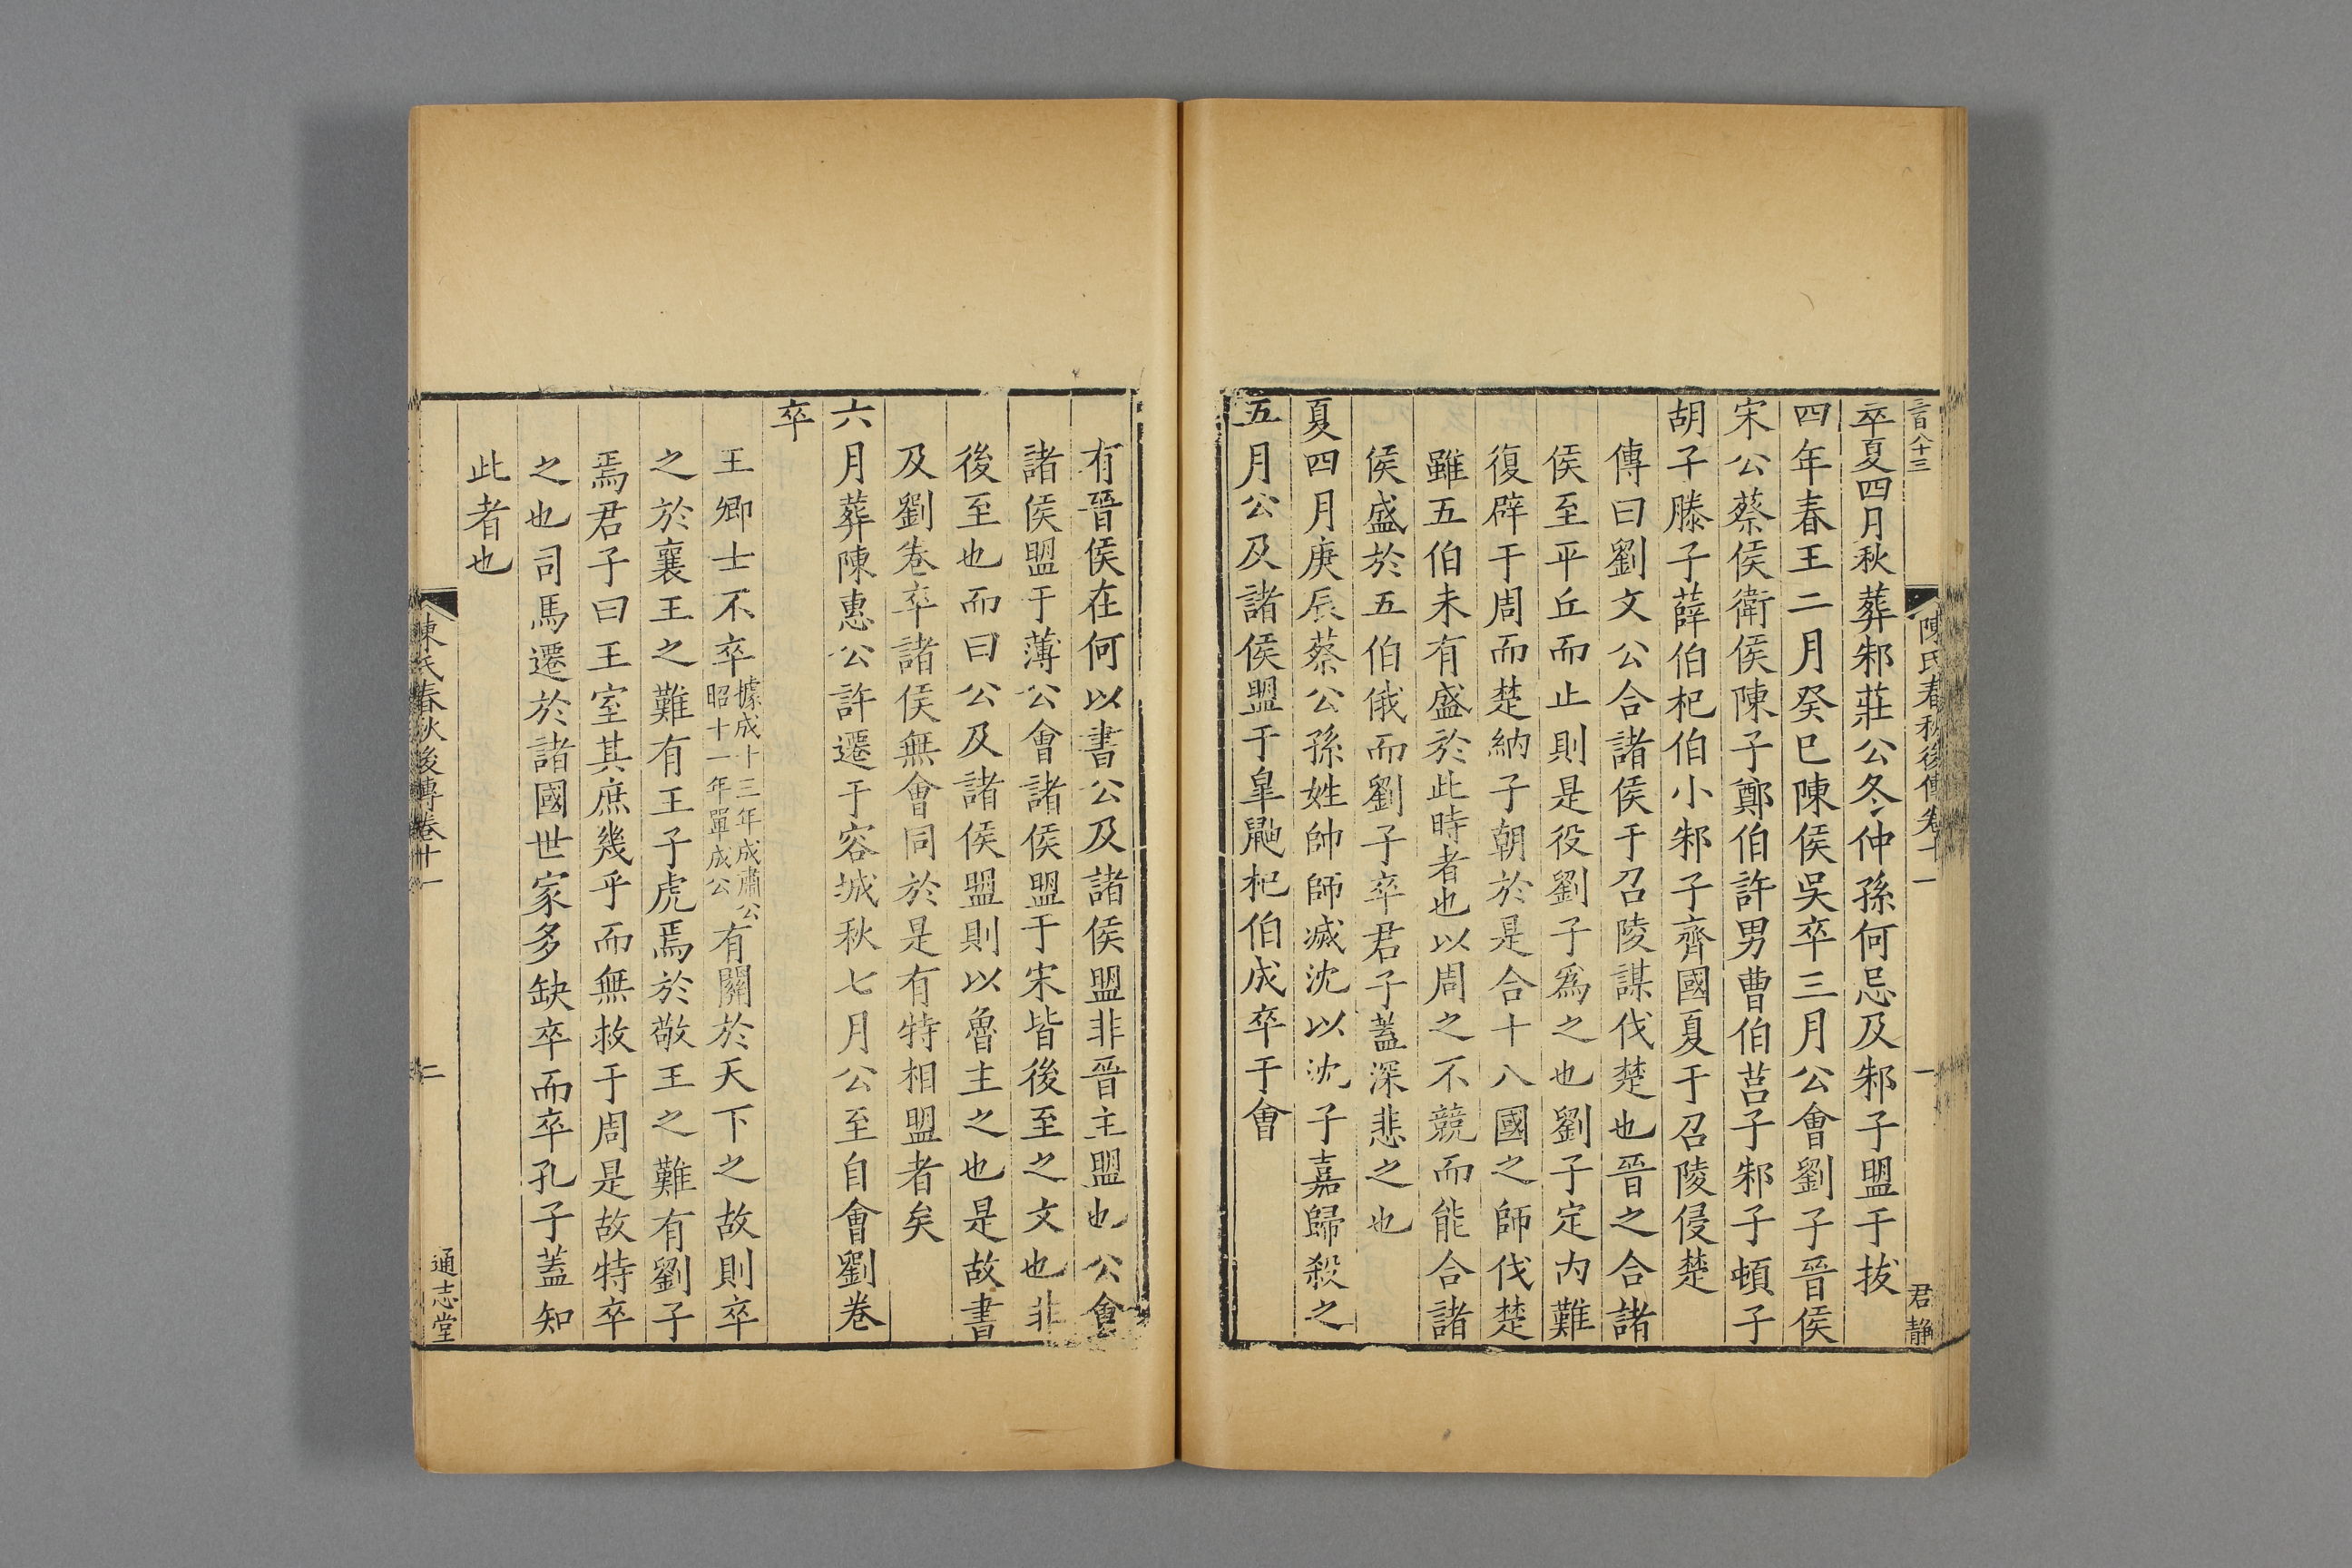 三百八十三
陳氏春秋後傳卷十一
一
君靜
卒夏四月秋葬邾莊公冬仲孫何忌及邾子盟于拔
四年春王二月癸巳陳侯吳卒三月公會劉子晉侯
宋公蔡侯衛侯陳子鄭伯許男曹伯莒子邾子頓子
胡子滕子薛伯杞伯小邾子齊國夏于召陵侵楚
傳曰劉文公合諸侯于召陵謀伐楚也晉之合諸
侯至平丘而止則是役劉子爲之也劉子定内難
復辟于周而楚納子朝於是合十八國之師伐楚
雖五伯未有盛於此時者也以周之不競而能合諸
侯盛於五伯俄而劉子卒君子蓋深悲之也
夏四月庚辰蔡公孫姓帥師滅沈以沈子嘉歸殺之
五月公及諸侯盟于皐鼬杞伯成卒于會
有晉侯在何以書公及諸侯盟非晉主盟也公會
諸侯盟于薄公會諸侯盟于宋皆後至之文也非
後至也而曰公及諸侯盟則以魯主之也是故書
及劉卷卒諸侯無會同於是有特相盟者矣
六月葬陳惠公許遷于容城秋七月公至自會劉卷
卒
王卿士不卒據成十三年成肅公昭十一年單成公有關於天下之故則卒
之於襄王之難有王子虎焉於敬王之難有劉子
焉君子曰王室其庶幾乎而無救于周是故特卒
之也司馬遷於諸國世家多缺卒而卒孔子蓋知
此者也
陳氏春秋後傳卷十一
二
通志堂